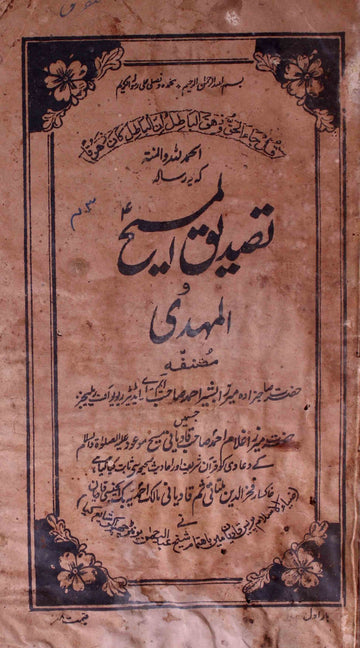 بسم اللہ الرحمن الرحیم نحمدہ ونصلی علی رسولہ الکریم
قل جاء الحق وزھق الباطل ان الباطل کان زھوقا
الحمد للہ والمنۃ
کہ یہ رسالہ
تصدیق المسیح
و
المہدی
مصنفہ
حضرت صاحبزادہ میرزا بشیر احمد صاحب ایم اے ایڈیٹر ریویو آف ریلیجنز
جسمیں
حضرت میرزا غلام احمد صاحب قادیانی مسیح موعود علیہ الصلوۃ والسلام
کے دعاوی کو قرآن شریف اور احادیث صحیحہ سے ثابت کیا گیا ہے
خاکسار فخر الدین ملتانی ثم قادیانی مالک احمدیہ کتب قادیان
نے
بار اول
قیمت